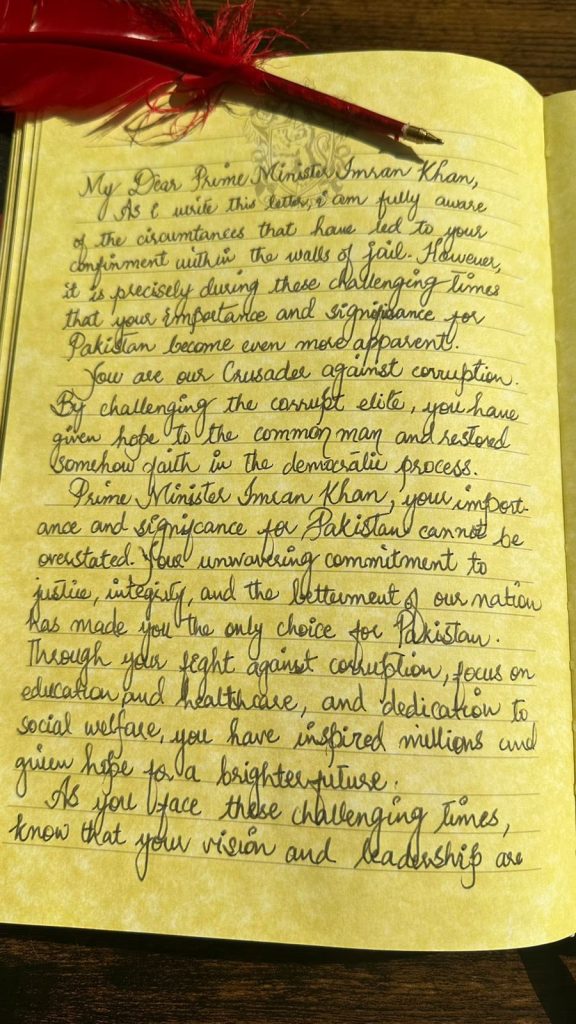 My Dear Prime Minister Imran Khan,
As I write this letter, i am fully aware
of the circumtances that have led to your
confinment within the walls of jail. However,
it is precisely during these challenging times
that your importance and significance for
Pakistan become even more apparent.
You are our Crusader against corruption.
By challenging the corrupt elite, you have
given hope to the common man and restored
somehow faith in the democratic process.
Prime Minister Imran Khan, your import-
ance and signifcance for Pakistan cannot be
overstated. Your unwavering commitment to
justice, integrity, and the betterment of our nation
has made you the only choice for Pakistan.
Through your fight against corruption, focus on
education and healthcare, and dedication to
social welfare, you have inspired millions and
given hope for a brighter future.
As you face these challenging times,
know that your vision and leadership are